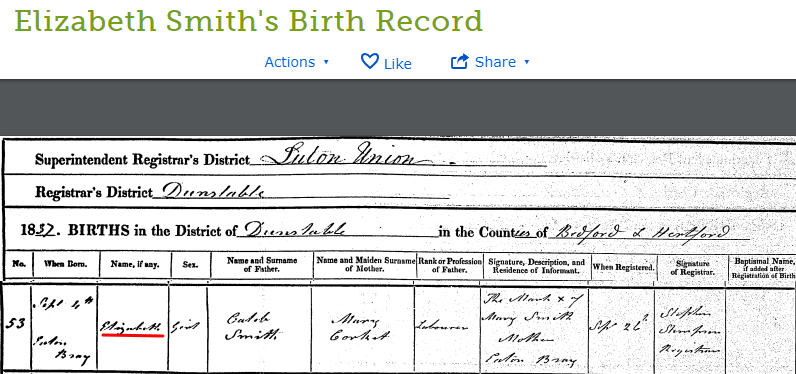 Elizabeth Smith's Birth Record
Actions ▾ Like Share ▾
Superintendent Registrar's District Luton Union
Registrar's District Dunstable
1837. BIRTHS in the District of Dunstable in the Counties of Bedford & Hertford
No. When Born. Name, if any. Sex. Name and Surname of Father. Name and Maiden Surname of Mother. Rank or Profession of Father. Signature, Description, and Residence of Informant. When Registered. Signature of Registrar. Baptismal Name, if added after Registration of Birth
53
Sept 4th
Eaton
Bray
Elizabeth
Girl
Caleb
Smith
Mary
Labourer
The Mark x of
Mary Smith
Mother
Eaton Bray
Sept 26th
Stephen
Simpson
Registrar